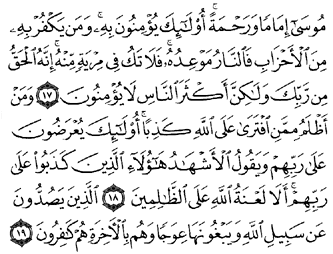 مُوسَىٰٓ إِمَامًا وَرَحْمَةً ۚ أُو۟لَـٰٓئِكَ يُؤْمِنُونَ بِهِۦ ۚ وَمَن يَكْفُرْ بِهِۦ
مِنَ ٱلْأَحْزَابِ فَٱلنَّارُ مَوْعِدُهُۥ ۚ فَلَا تَكُ فِى مِرْيَةٍ مِّنْهُ ۚ إِنَّهُ ٱلْحَقُّ
مِن رَّبِّكَ وَلَـٰكِنَّ أَكْثَرَ ٱلنَّاسِ لَا يُؤْمِنُونَ ١٧ وَمَنْ
أَظْلَمُ مِمَّنِ ٱفْتَرَىٰ عَلَى ٱللَّهِ كَذِبًا ۚ أُو۟لَـٰٓئِكَ يُعْرَضُونَ
عَلَىٰ رَبِّهِمْ وَيَقُولُ ٱلْأَشْهَـٰدُ هَـٰٓؤُلَآءِ ٱلَّذِينَ كَذَبُوا۟ عَلَىٰ
رَبِّهِمْ ۚ أَلَا لَعْنَةُ ٱللَّهِ عَلَى ٱلظَّـٰلِمِينَ ١٨ ٱلَّذِينَ يَصُدُّونَ
عَن سَبِيلِ ٱللَّهِ وَيَبْغُونَهَا عِوَجًا وَهُم بِٱلْـَٔاخِرَةِ هُمْ كَـٰفِرُونَ ١٩